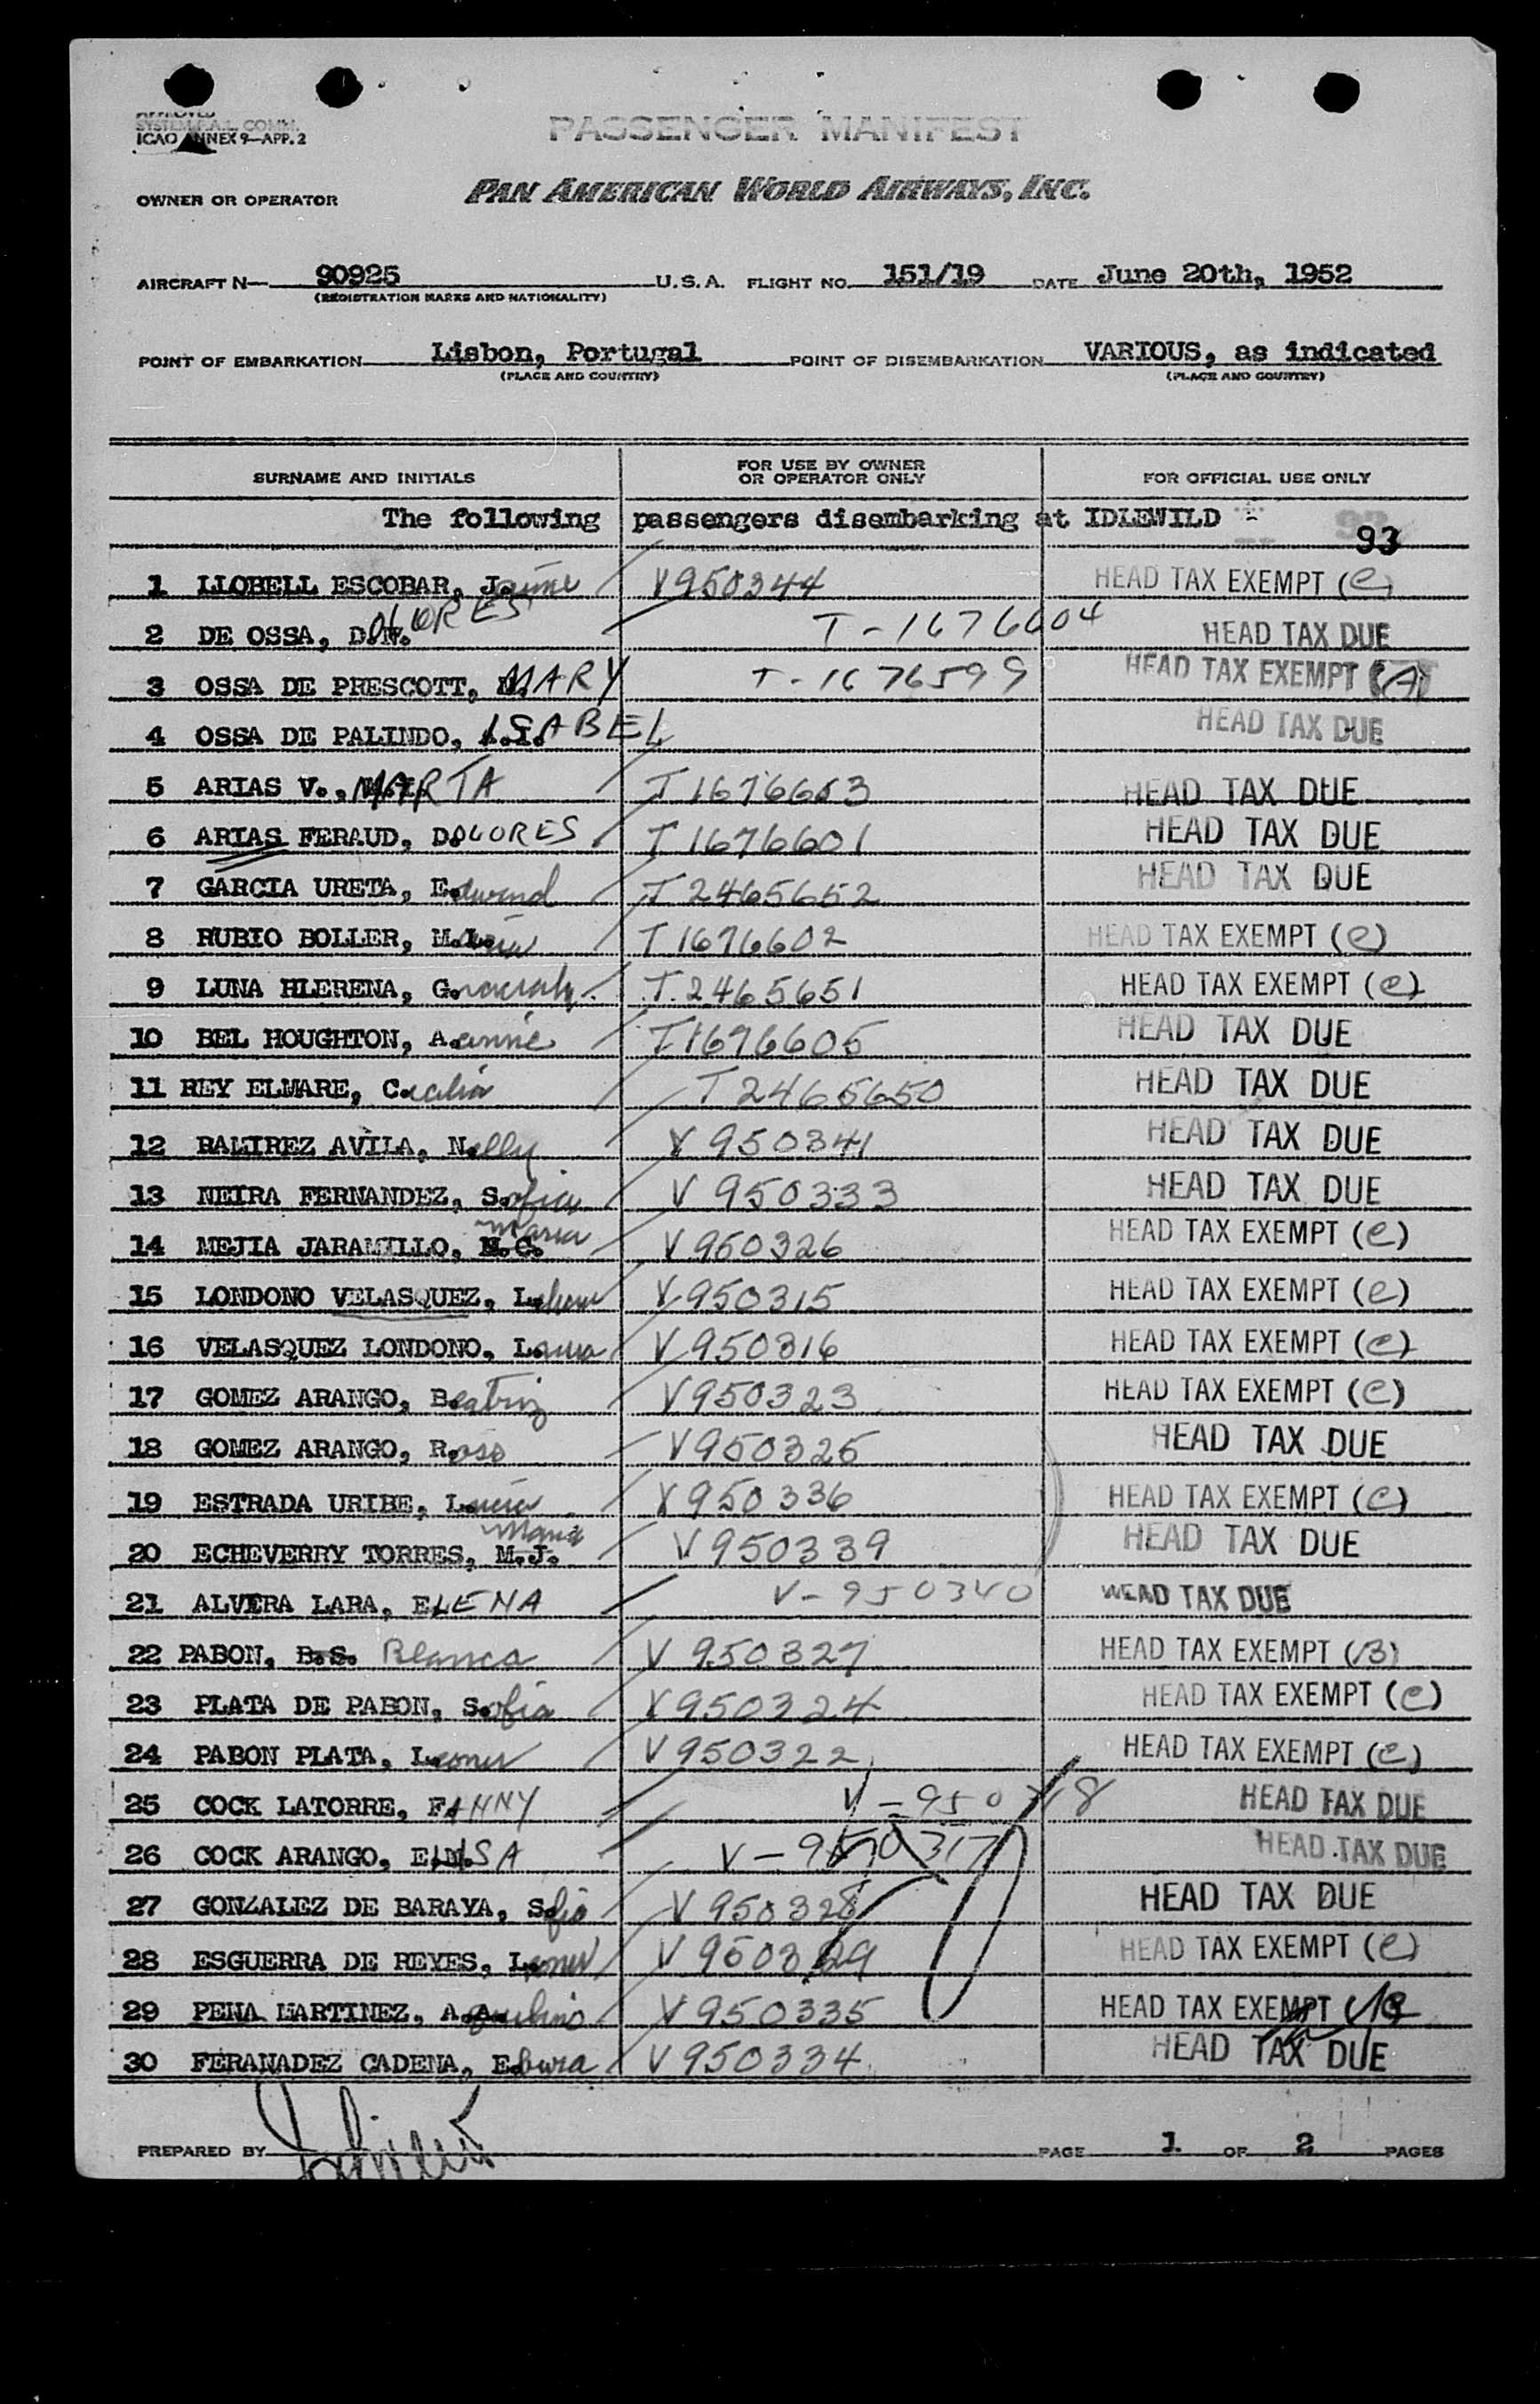 APPROVED
SYSTEM F.A.L. COMM.
ICAO ANNEX 9—APP. 2
PASSENGER MANIFEST
OWNER OR OPERATOR PAN AMERICAN WORLD AIRWAYS, INC.
AIRCRAFT N— 90925 U.S.A. FLIGHT NO. 151/19 DATE June 20th, 1952
(REGISTRATION MARKS AND NATIONALITY)
POINT OF EMBARKATION Lisbon, Portugal POINT OF DISEMBARKATION VARIOUS, as indicated
(PLACE AND COUNTRY) (PLACE AND COUNTRY)
SURNAME AND INITIALS FOR USE BY OWNER OR OPERATOR ONLY FOR OFFICIAL USE ONLY
The following passengers disembarking at IDLEWILD -
93
1 LLOBELL ESCOBAR, Jaime V950344 HEAD TAX EXEMPT (e)
2 DE OSSA, DOLORES T-1676604 HEAD TAX DUE
3 OSSA DE PRESCOTT, MARY T-1676599 HEAD TAX EXEMPT (A)
4 OSSA DE PALINDO, ISABEL HEAD TAX DUE
5 ARIAS V., MARTA T1676603 HEAD TAX DUE
6 ARIAS FERAUD, DOLORES T1676601 HEAD TAX DUE
7 GARCIA URETA, E. T2465652 HEAD TAX DUE
8 RUBIO BOLLER, M.L. T1676602 HEAD TAX EXEMPT (e)
9 LUNA HLERENA, G. T.2465651 HEAD TAX EXEMPT (e)
10 BEL HOUGHTON, A.annie T1676605 HEAD TAX DUE
11 REY ELMARE, Cecilia T2465650 HEAD TAX DUE
12 RAMIREZ AVILA, Nelly V950341 HEAD TAX DUE
13 NEIRA FERNANDEZ, Sofia V950333 HEAD TAX DUE
14 MEJIA JARAMILLO, Maria V950326 HEAD TAX EXEMPT (e)
15 LONDONO VELASQUEZ, L. V950315 HEAD TAX EXEMPT (e)
16 VELASQUEZ LONDONO, Laura V950316 HEAD TAX EXEMPT (e)
17 GOMEZ ARANGO, Beatriz V950323 HEAD TAX EXEMPT (e)
18 GOMEZ ARANGO, Rosa V950325 HEAD TAX DUE
19 ESTRADA URIBE, Lucia V950336 HEAD TAX EXEMPT (e)
20 ECHEVERRY TORRES, M.J. Maria V950339 HEAD TAX DUE
21 ALVERA LARA, ELENA V-950340 HEAD TAX DUE
22 PABON, B.S. Blanca V950327 HEAD TAX EXEMPT (B)
23 PLATA DE PABON, Sofia V950324 HEAD TAX EXEMPT (e)
24 PABON PLATA, Leonor V950322 HEAD TAX EXEMPT (e)
25 COCK LATORRE, FANNY V-950318 HEAD TAX DUE
26 COCK ARANGO, ELISA V-950317 HEAD TAX DUE
27 GONZALEZ DE BARAYA, Sofia V950328 HEAD TAX DUE
28 ESGUERRA DE REYES, Leonor V950329 HEAD TAX EXEMPT (e)
29 PENA MARTINEZ, A.A. V950335 HEAD TAX EXEMPT
30 FERANADEZ CADENA, E. V950334 HEAD TAX DUE
PREPARED BY PAGE 1 OF 2 PAGES